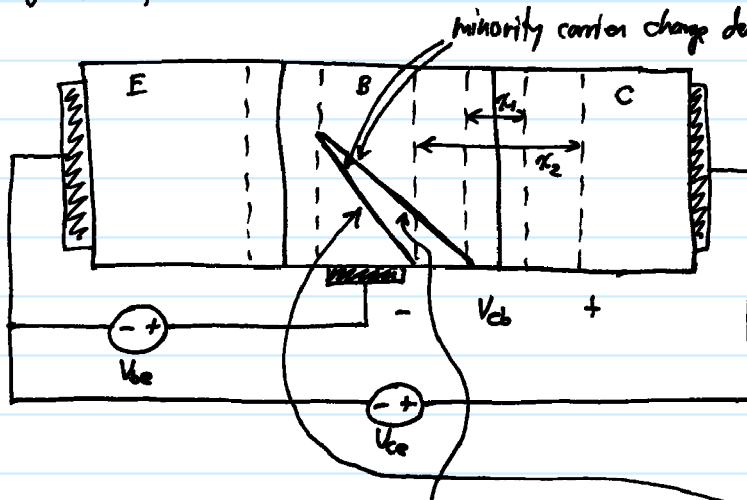 minority carrier change de
E
B
C
x1
x2
- Vcb +
- +
Vbe
- +
Vce